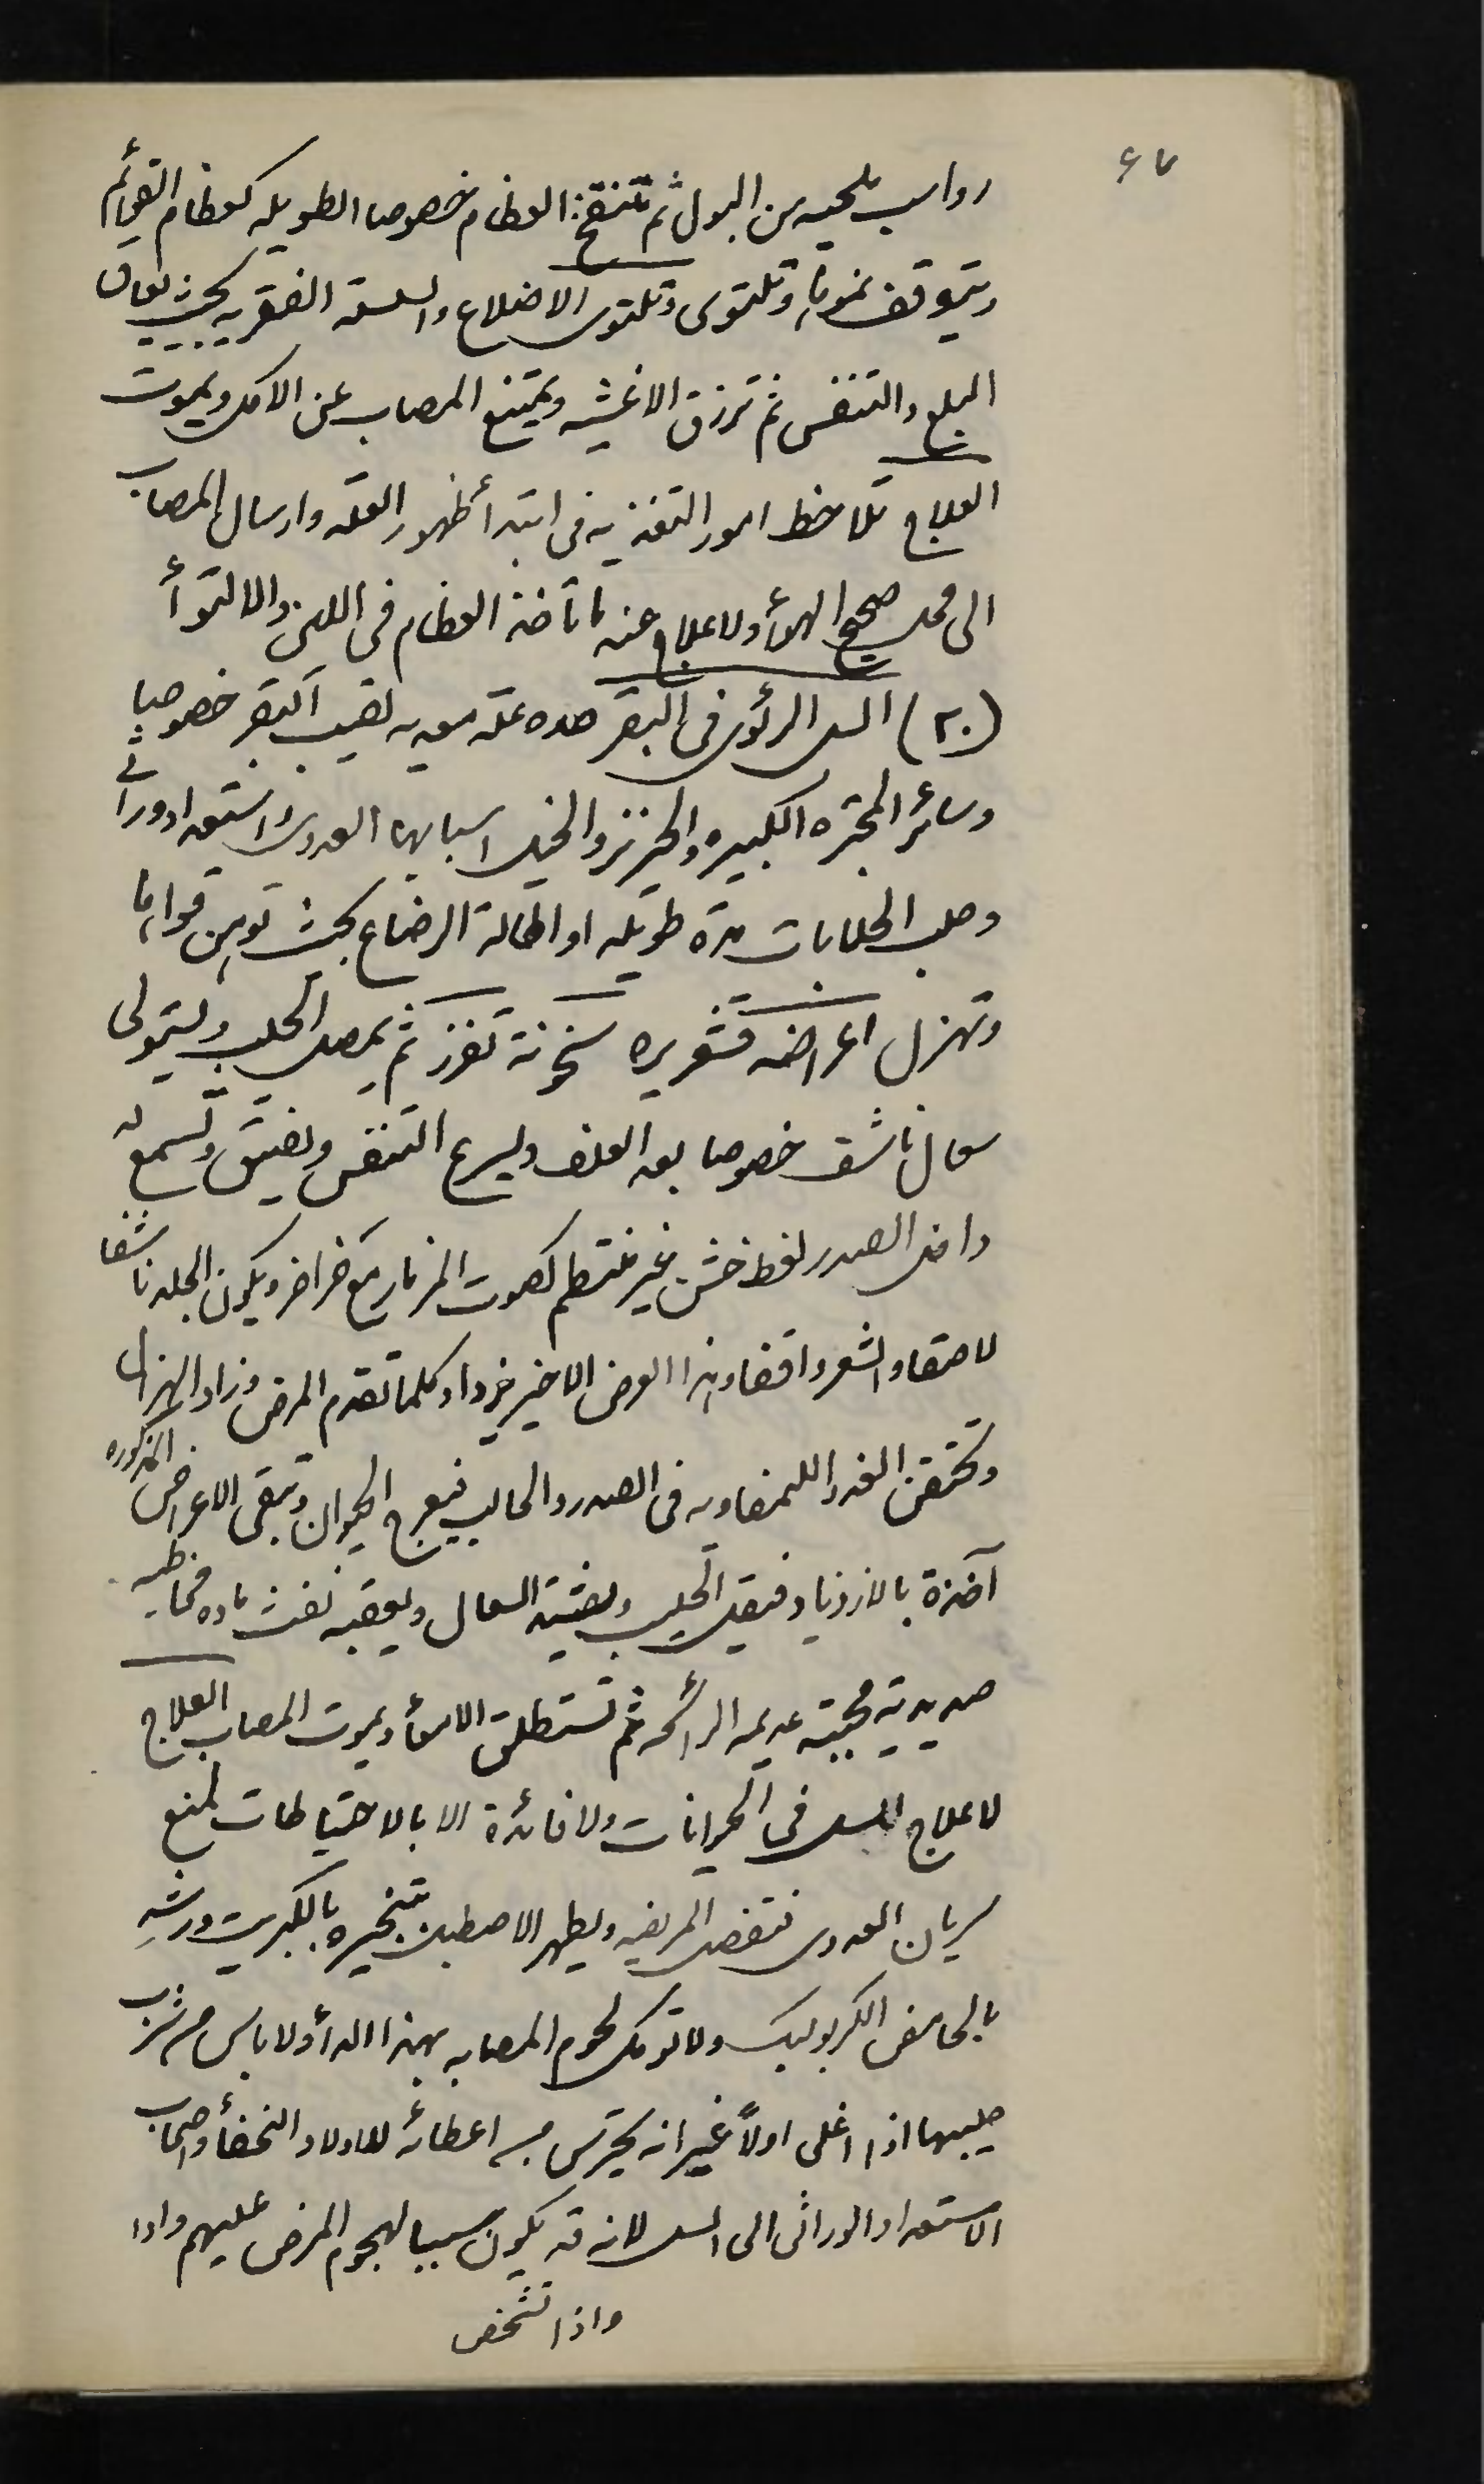 ٦٧
رواسب ملحيه من البول ثم تنتفخ العظام خصوصا الطويله كعظام القوائم
ويتوقف نموها وتلتوى وتلتوى الاضلاع والسلسلة الفقريه بحيث يعاق
البلع والتنفس ثم تزرق الاغشيه ويمتنع المصاب عن الاكل ويموت
العلاج تلاحظ امور التغذيه فى ابتدأ ظهور العله وارسال المصاب
الى محل صحيح الهوأ ولا علاج عندما تأخذ العظام فى اللين والالتوأ
(٣٠) السل الرئوى فى البقر هذه علة معديه تصيب البقر خصوصا
وسائر المجتره الكبيره والخنزير والخيل اسبابها العدوى واستعداد وراثى
وحلب الحلابات مدة طويله او اطالة الرضاع بحيث توهن قواها
وتهزل اعراضه قشعريره سخونة تفزز ثم يمصل الحليب ويستولى
سعال ناشف خصوصا بعد العلف ويسرع التنفس ويضيق وتسمع له
داخل الصدر لغط خشن غير منتظم كصوت المزمار مع خراخر ويكون الجلد ناشفا
لاصقا والشعر واقفا وهذا العرض الاخير يزداد كلما تقدم المرض وزاد الهزال
وتحتقن الغدد اللمفاويه فى الصدر والحالب فيعرج الحيوان وتبقى الاعراض المذكوره
آخذة بالازدياد فيقل الحليب ويشتد السعال ويعقبه نفث ماده مخاطيه
صديدية محببة عديمه الرائحه ثم تستطلق الامعأ ويموت المصاب العلاج
لا علاج للسل فى الحيوانات ولا فائدة الا بالاحتياطات لمنع
سريان العدوى فتفصل المريضه ويطهر الاصطبل بتبخيره بالكبريت ورشهِ
بالحامض الكربوليك ولا تؤكل لحوم المصابه بهذا الدأ ولا باس من شرب
حليبها اذا اغلى اولاً غير انه يحترس من اعطائه للاولاد النحفأ واصحاب
الاستعداد الوراثى الى السل لانه قد يكون سببا لهجوم المرض عليهم واذا
واذا تشخص